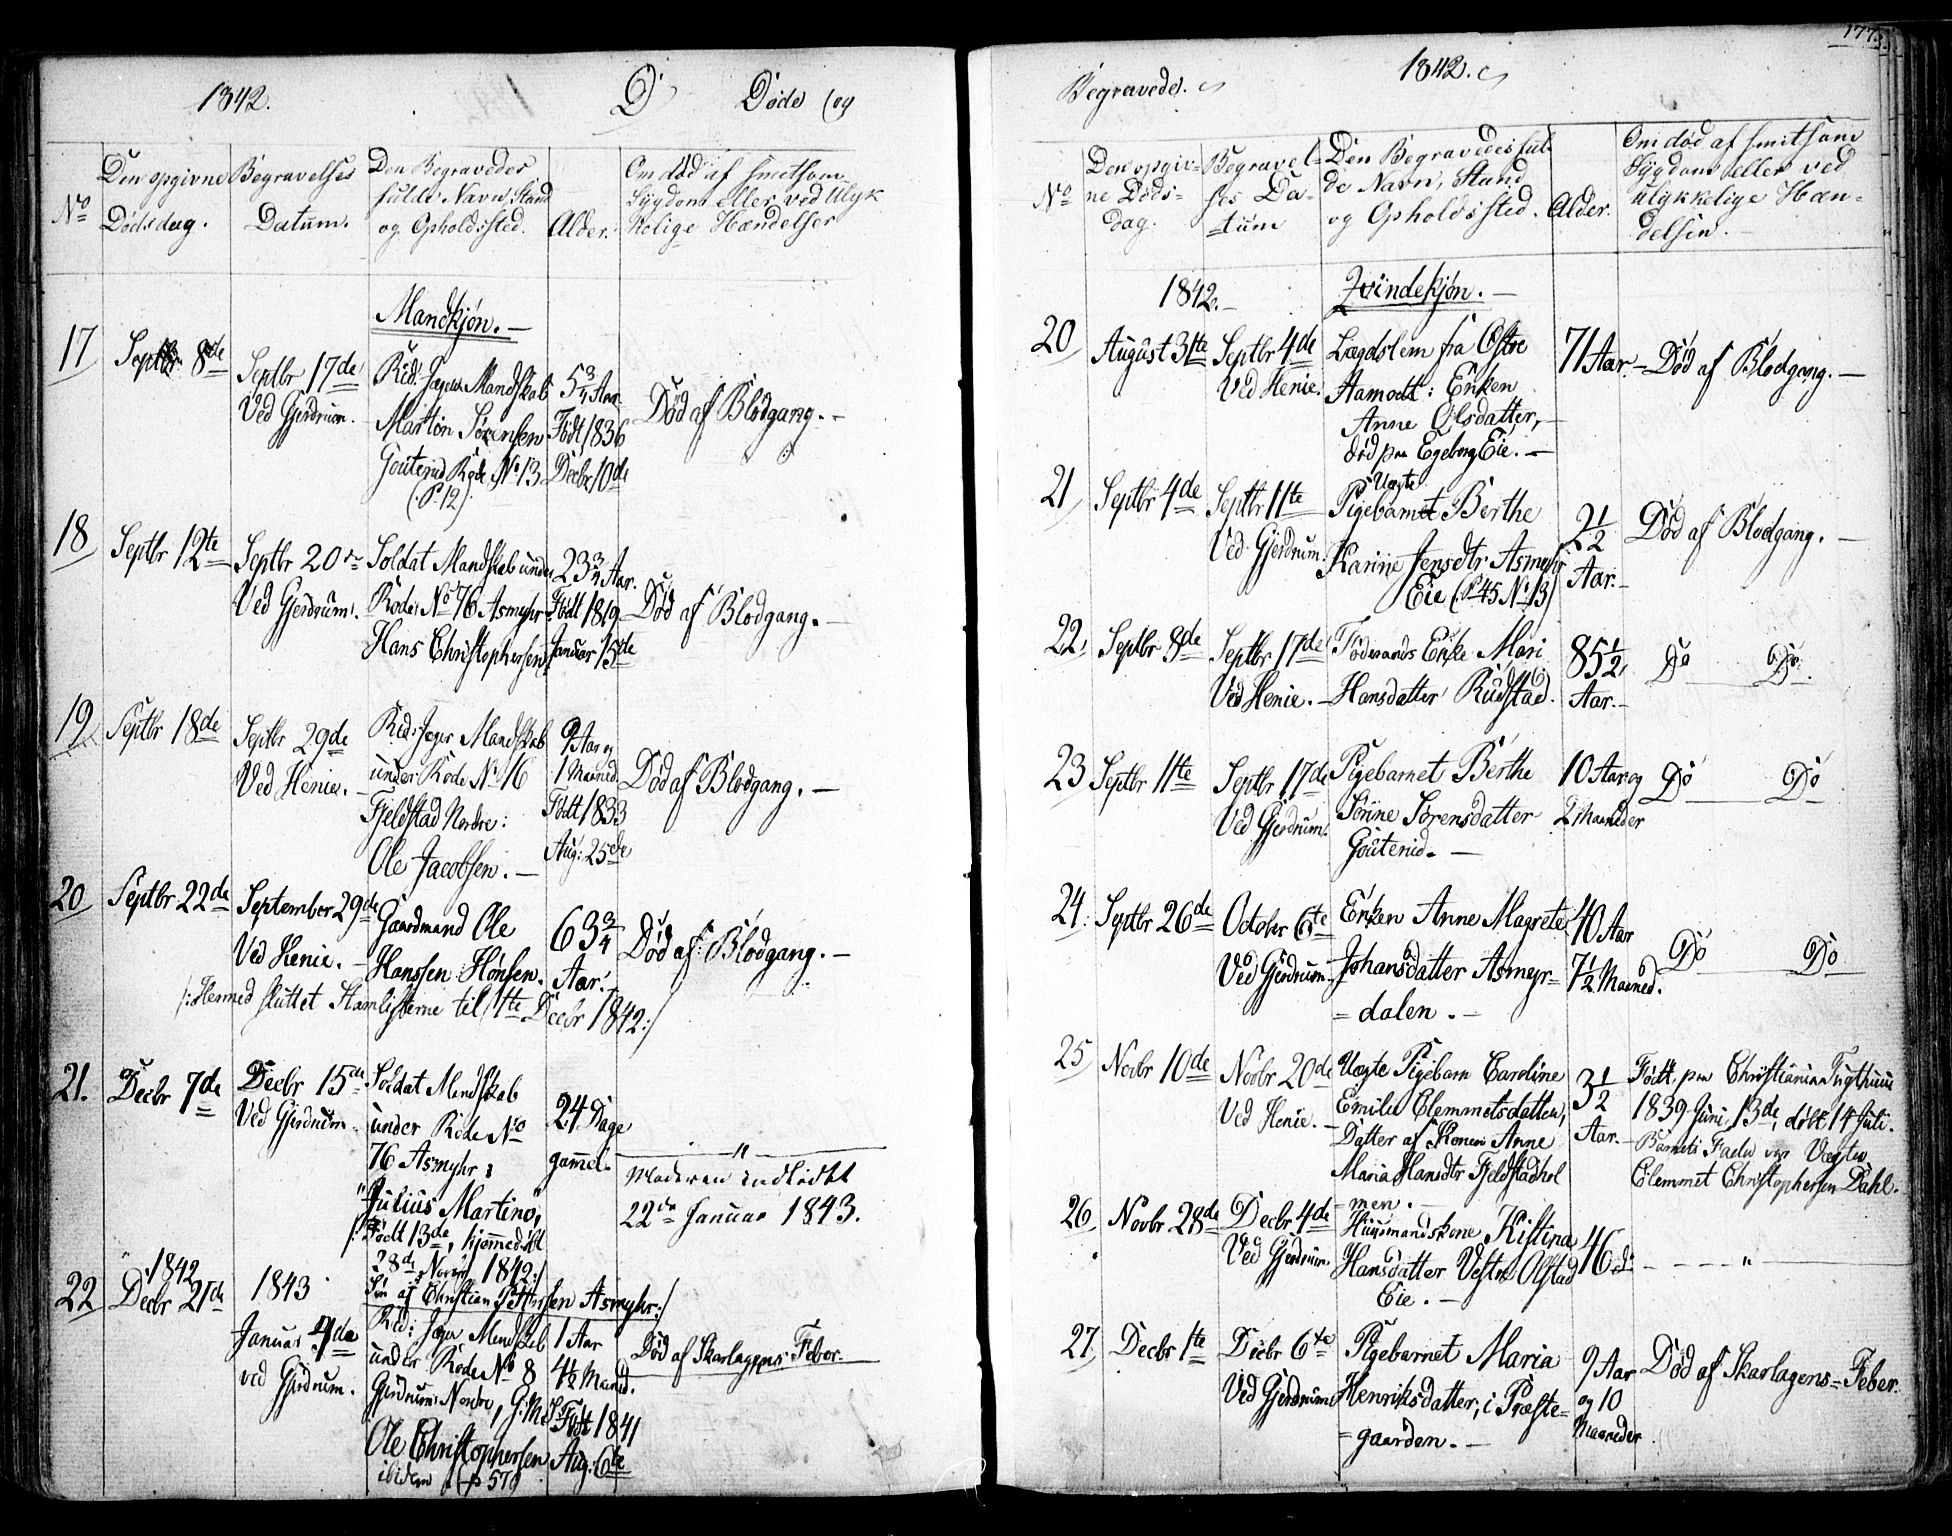 1842. D Døde (og
No
Den opgivne
Dødsdag.
Begravelses
Datum.
Den Begravedes
fulde Navn, Stand
og Opholdssted.
Alder.
Om død af smitsom
Sygdom eller ved Ulyk
kelige Hændelser
Mandkjøn. —
17
Septbr 8de
Septbr 17de
Ved Gjerdrum.
Rid: Jæger Mandskab
Martin Sørensen
Gouterud Rode No 13
(P. 12)
5 3/4 Aar.
Født 1836
Decbr 10de
Død af Blodgang. —
18
Septbr 12te
Septbr 20
Ved Gjerdrum.
Soldat Mandskab under
Rode No 76 Asmyhr
Hans Christophersen
23 3/4 Aar.
Født 1819
Januar 15de
Død af Blodgang. —
19
Septbr 18de
Septbr 29de
Ved Henie. —
Rid: Jæger Mandskab
under Rode No 16
Fjeldstad Nordre:
Ole Jacobsen. —
9 Aar og
1 Maaned
Født 1833
Aug: 25de
Død af Blodgang. —
20
Septbr 22de
September 29de
Ved Henie. —
Gaardmand Ole
Hanssen Hønsen.
63 3/4
Aar.
Død af Blodgang. —
/: Hermed sluttet Stamlisterne til 1te Decbr 1842:/
21.
Decbr 7de
Decbr 15de
Ved Gjerdrum.
Soldat Mandskab
under Rode No
76 Asmyhr:
"Julius Martino",
/: Født 13de, hjemmedøbt
28de Novbr 1842:/
Søn af Christian Asmyhr:/
24 Dage
gammel.
— " —
Moderen indledt
22de Januar 1843.
22
1842
Decbr 21de
1843
Januar 4de
ved Gjerdrum.
Rid: Jæger Mandskab
under Rode No 8
Gjerdrum Nordre,
Ole Christophersen
ibidem (p 579
1 Aar
4 1/2 Maaned.
Født 1841
Aug: 6te
Død af Skarlagens-Feber.
177.
Begravede. 1842.
No
Den opgiv-
ne Døds-
dag.
Begravel-
ses Da-
tum
Den Begravedes ful-
de Navn, Stand
og Opholdssted.
Alder.
Om død af smitsom
Sygdom eller ved
ulykkelige Hæn-
delser.
1842.
Qvindekjøn. —
20
August 31te
Septbr 4de
Ved Henie.
Lægdslem fra Østre
Aamodt: Enken
Anne Olsdatter,
død paa Egeberg Eie. —
71 Aar.
Død af Blodgang. —
21
Septbr 4de
Septbr 11te
Ved Gjerdrum.
Uægte
Pigebarnet Berthe
Karine Jensdtr Asmyhr
Eie (P 45 No 13)
2 1/2
Aar. —
Død af Blodgang. —
22
Septbr 8de
Septbr 17de
Ved Henie. —
Føderaads Enke Mari
Hansdatter Rudstad.
85 1/2
Aar. —
Do Do.
23
Septbr 11te
Septbr 17de
Ved Gjerdrum.
Pigebarnet Berthe
Sørine Sørensdatter
Gouterud. —
10 Aar og
2 Maaneder
Do Do
24.
Septbr 26de
October 6te
Ved Gjerdrum.
Enken Anne Magrete
Johansdatter Asmyr-
= dalen. —
40 Aar
7 1/2 Maaned.
Do Do
25
Novbr 10de
Novbr 20de
Ved Henie. —
Uægte Pigebarn Caroline
Emilie Clemmetsdatter,
Datter af Konen Anne
Maria Hansdtr Fjeldstadhol
- men. —
3 1/2
Aar. —
Født paa Christiania Tugthuus
1839 Juni 13de, døbt 14 Juli.
Barnets Fader var Vægter
Clemmet Christophersen Dahl.
26
Novbr 28de
Decbr 4de
Ved Gjerdrum
Huusmandskone Kistina
Hansdatter Vestre Olstad
Eie. —
46
— " —
27.
Decbr 1te
Decbr 6te
Ved Gjerdrum
Pigebarnet Maria
Henriksdatter, i Præste-
= gaarden. —
9 Aar
og 10
Maaneder
Død af Skarlagens-Feber.